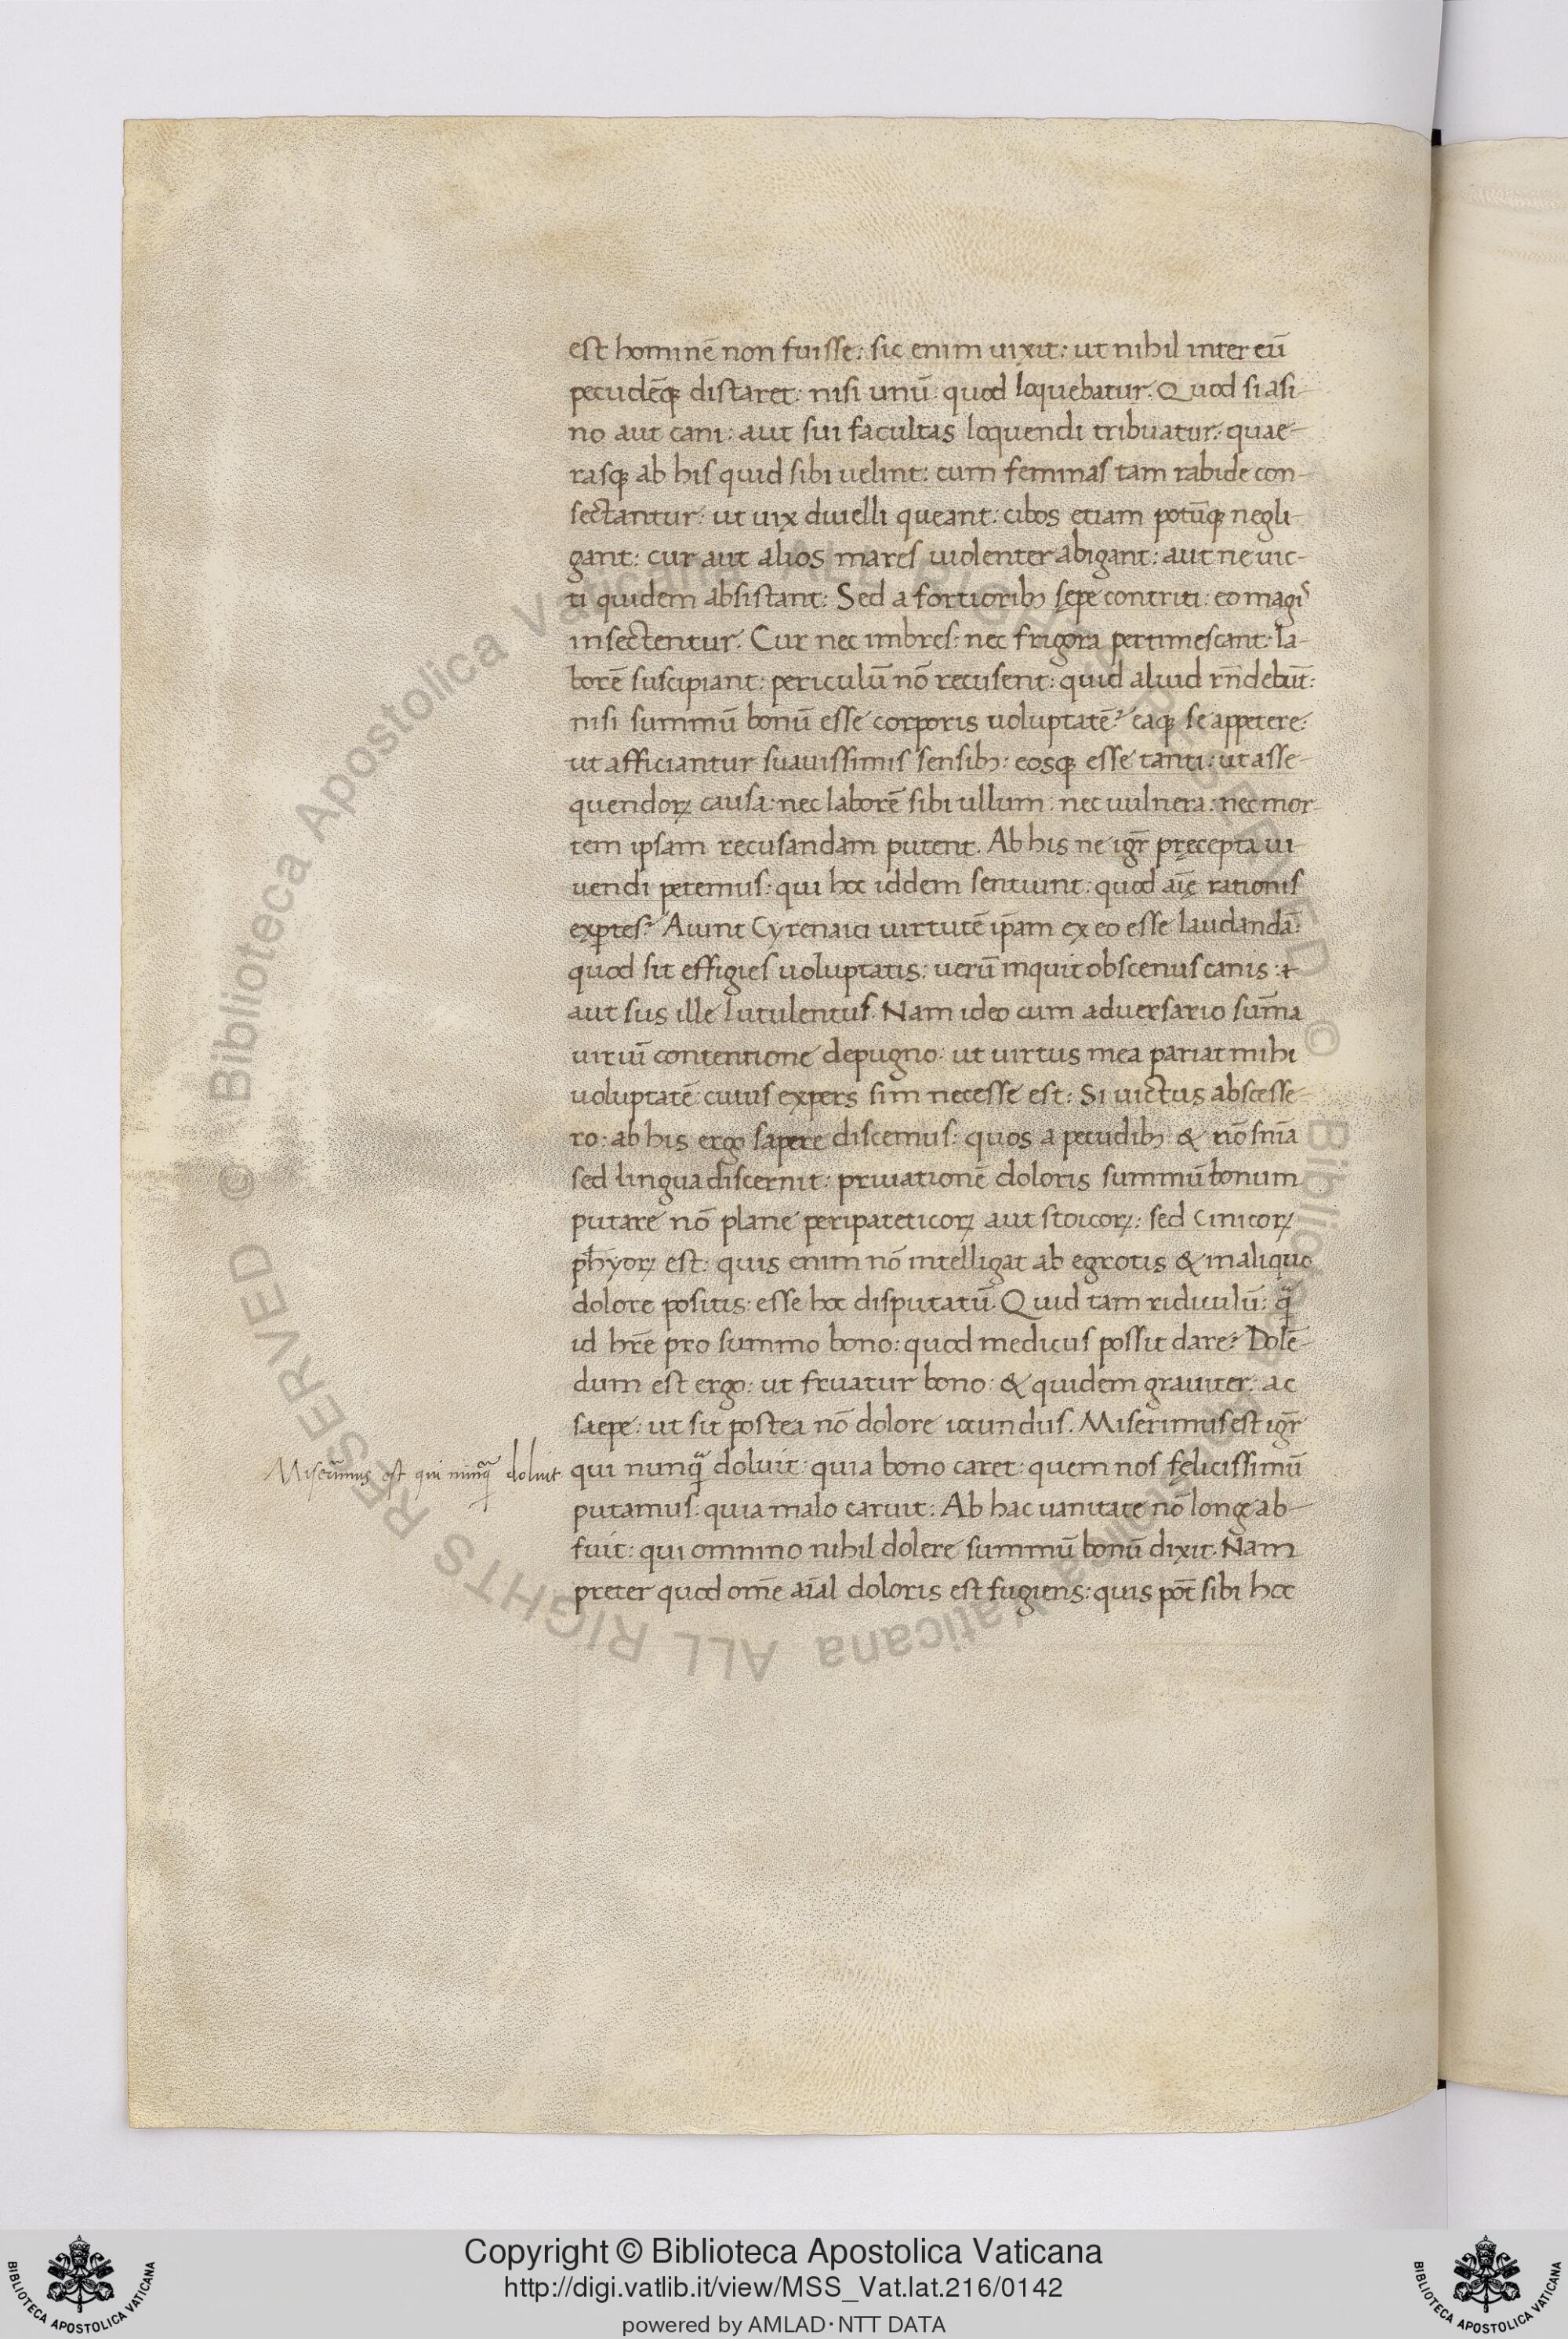 est hominē non fuisse: sic enim uixit: ut nihil inter eū
pecudēq; distaret: nisi unū: quod loquebatur. Quod si asi-
no aut cani: aut sui facultas loquendi tribuatur: quae-
rasq; ab his quid sibi uelint: cum feminas tam rabide con-
sectantur: ut uix diuelli queant: cibos etiam potūq; negli-
gant: cur aut alios mares uiolenter abigant: aut ne uic-
ti quidem absistant: Sed a fortiorib; sępe contriti: eo magis
insectentur. Cur nec imbres: nec frigora pertimescant: la-
borē suscipiant: periculū nō recusent: quid aliud rñdebūt:
nisi summū bonū esse corporis uoluptatē? eaq; se appetere:
ut afficiantur suauissimis sensib;: eosq; esse tanti: ut asse-
quendoꝝ causa: nec laborē sibi ullum: nec uulnera: nec mor-
tem ipsam recusandam putent. Ab his ne igr̄ pręcepta ui
uendi petemus: qui hoc iddem sentiunt: quod aīę rationis
expertes? Aiunt Cyrenaici uirtutē ip̄am ex eo esse laudandā:
quod sit effigies uoluptatis: uerū inquit obscenus canis:
aut sus ille lutulentus. Nam ideo cum aduersario sum̄a
uiriū contentione depugno: ut uirtus mea pariat mihi
uoluptatē: cuius expers sim necesse est: Si uictus abscesse-
ro: ab his ergo sapere discemus: quos a pecudib; & nō snīa
sed lingua discernit: priuationē doloris summū bonum
putare nō plane peripateticoꝝ aut stoicoꝝ: sed Cinicoꝝ
ph̄yoꝝ est: quis enim nō intelligat ab egrotis & in aliquo
dolore positis: esse hoc disputatū. Quid tam ridiculū: q̄
id hr̄e pro summo bono: quod medicus possit dare? Dolē-
dum est ergo: ut fruatur bono: & quidem grauiter: ac
saepe: ut sit postea nō dolore iocundus. Miserimus est igr̄
Miserrimus est qui nunq̄ doluit
qui nunq̄ doluit: quia bono caret: quem nos fęlicissimū
putamus: quia malo caruit: Ab hac uanitate nō longe ab-
fuit: qui omnino nihil dolere summū bonū dixit. Nam
preter quod om̄e aīal doloris est fugiens: quis pōt sibi hoc
© Biblioteca Apostolica Vaticana ALL RIGHTS RESERVED © Biblioteca Apostolica Vaticana ALL RIGHTS RESERVED
Copyright © Biblioteca Apostolica Vaticana
http://digi.vatlib.it/view/MSS_Vat.lat.216/0142
powered by AMLAD·NTT DATA
BIBLIOTECA APOSTOLICA VATICANA
BIBLIOTECA APOSTOLICA VATICANA